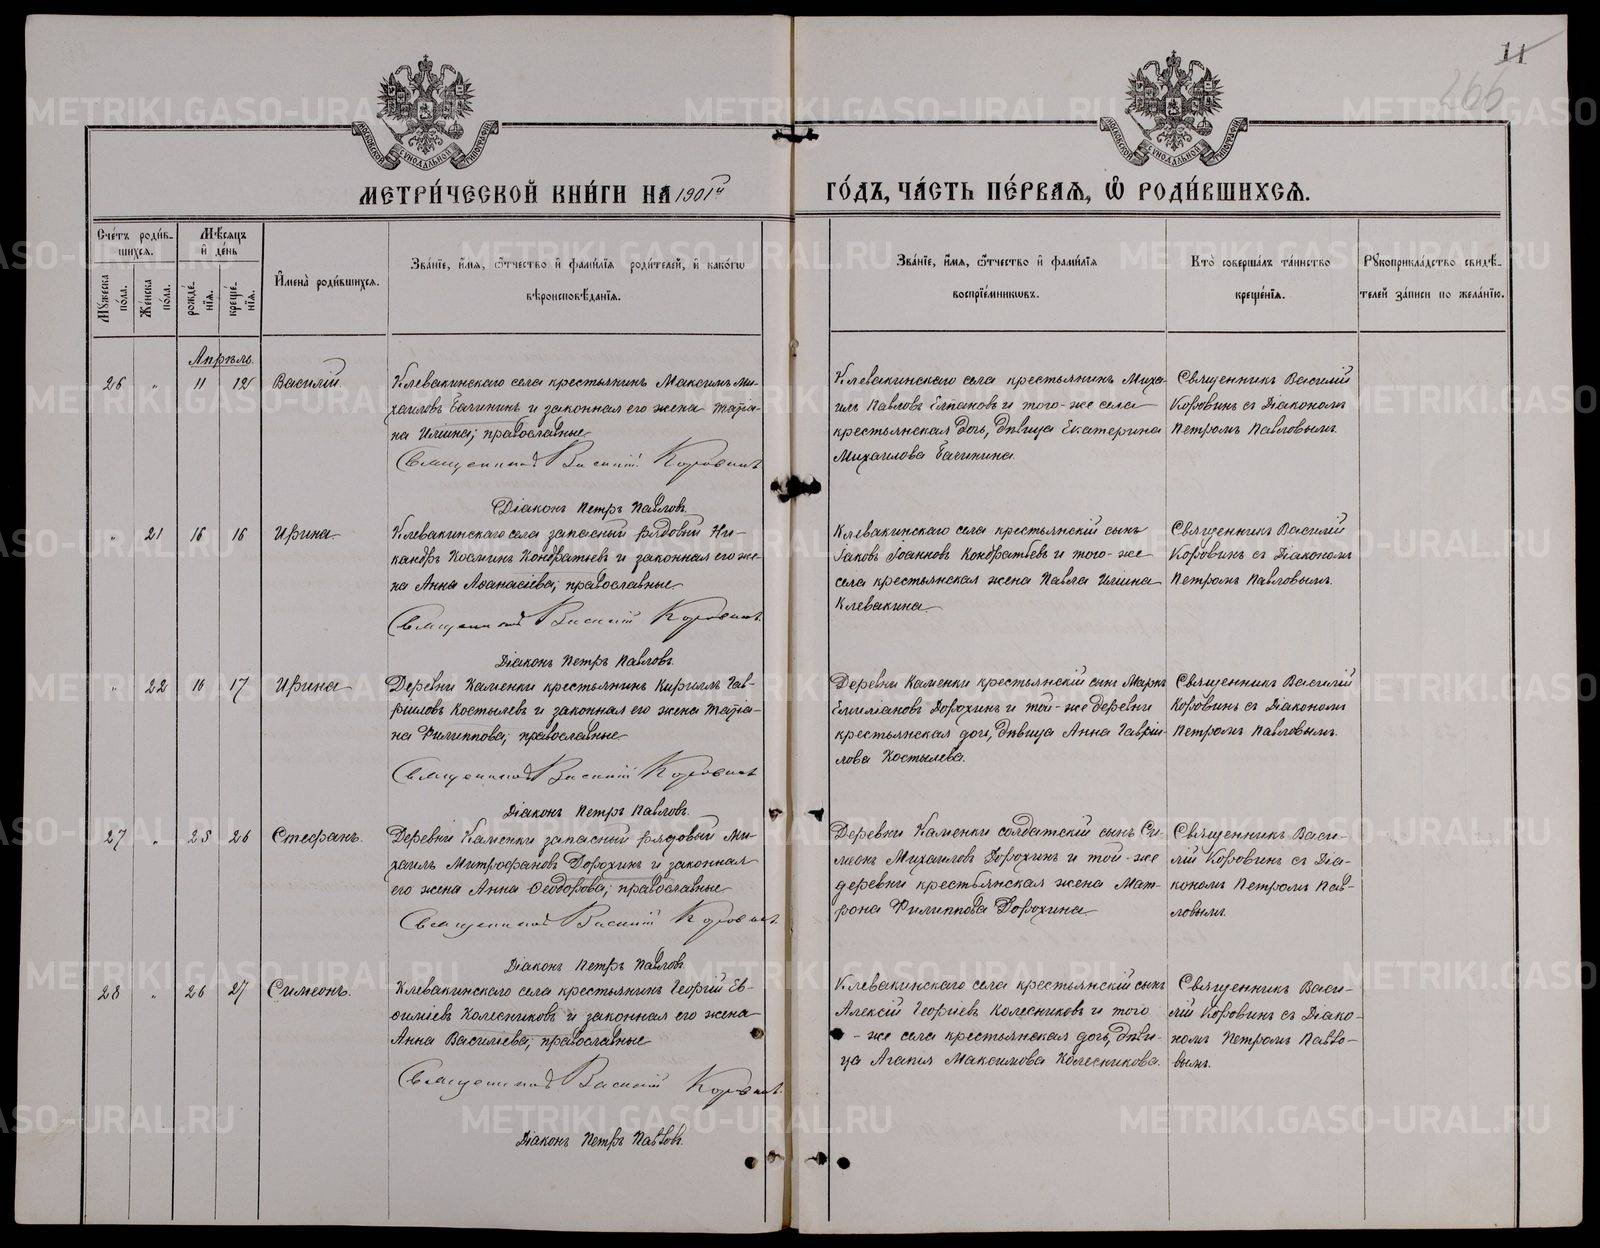 11
266
МЕТРИ́ЧЕСКОЙ КНИ́ГИ НА 1901й ГО́ДЪ, ЧА́СТЬ ПЕ́РВАЯ, Ѡ РОДИ́ВШИХСЯ.
Сче́тъ роди́в-
шихся.
Мꙋжеска по́ла.
Же́нска по́ла.
Мѣ́сяцъ и де́нь
рожде́нїя.
креще́нїя.
И҆мена̀ роди́вшихся.
Зва́нїе, и҆́мя, ѻ҆́тчество и҆ фами́лїя роди́телей, и҆ како́гѡ
вѣроисповѣ́данїя.
Зва́нїе, и҆́мя, ѻ҆́тчество и҆ фами́лїя
воспрїе́мникѡвъ.
Кто̀ соверша́лъ та́инство
креще́нїя.
Рꙋкоприкла́дство свидѣ́-
телей за́писи по жела́нїю.
Апрѣль.
26 " 11 12 Василій.
Клевакинскаго села крестьянинъ Максимъ Ми-
хаиловъ Бачининъ и законная его жена Татіа-
на Иліина; православные
Священникъ Василій Коровинъ
Діаконъ Петръ Павловъ.
Клевакинскаго села крестьянинъ Миха-
илъ Павловъ Елпановъ и того-же села
крестьянская дочь, дѣвица Екатерина
Михаилова Бачинина.
Священникъ Василій
Коровинъ съ Діакономъ
Петромъ Павловымъ.
" 21 16 16 Ирина
Клевакинскаго села запасный рядовый Ни-
кандръ Косминъ Кондратьевъ и законная его же-
на Анна Аѳанасіева; православные
Священникъ Василій Коровинъ.
Діаконъ Петръ Павловъ.
Клевакинскаго села крестьянскій сынъ
Іаковъ Іоанновъ Кондратьевъ и того-же
села крестьянская жена Павла Иліина
Клевакина
Священникъ Василій
Коровинъ съ Діакономъ
Петромъ Павловымъ.
" 22 16 17 Ирина
Деревни Каменки крестьянинъ Кириллъ Гав-
рииловъ Костылевъ и законная его жена Татіа-
на Филиппова; православные
Священникъ Василій Коровинъ
Діаконъ Петръ Павловъ.
Деревни Каменки крестьянскій сынъ Маркъ
Емиліановъ Дорохинъ и той-же деревни
крестьянская дочь, дѣвица Анна Гавріи-
лова Костылева.
Священникъ Василій
Коровинъ съ Діакономъ
Петромъ Павловымъ.
27 " 25 26 Стефанъ.
Деревни Каменки запасный рядовый Ми-
хаилъ Митрофановъ Дорохинъ и законная
его жена Анна Ѳеодорова; православные
Священникъ Василій Коровинъ.
Діаконъ Петръ Павловъ.
Деревни Каменки солдатскій сынъ Си-
меонъ Михаиловъ Дорохинъ и той-же
деревни крестьянская жена Мат-
рона Филиппова Дорохина
Священникъ Васи-
лій Коровинъ съ Діа-
кономъ Петромъ Пав-
ловымъ.
28 " 26 27 Симеонъ.
Клевакинскаго села крестьянинъ Георгій Ев-
ѳиміевъ Колесниковъ и законная его жена
Анна Василіева; православные
Священникъ Василій Коровинъ.
Діаконъ Петръ Павловъ.
Клевакинскаго села крестьянскій сынъ
Алексій Георгіевъ Колесниковъ и того
-же села крестьянская дочь, дѣви-
ца Агапія Максимова Колесникова.
Священникъ Васи-
лій Коровинъ съ Діако-
номъ Петромъ Павло-
вымъ.
METRIKI.GASO-URAL.RU